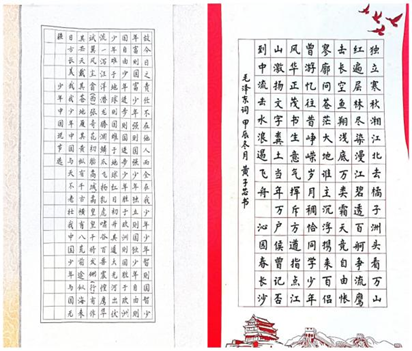 故今日之责任不在他人而全在我少年少年智则国智少
年富则国富少年强则国强少年独立则国独立少年自由则
国自由少年进步则国进步少年胜于欧洲则国胜于欧洲
少年雄于地球则国雄于地球红日初升其道大光河出伏
流一泻汪洋潜龙腾渊鳞爪飞扬乳虎啸谷百兽震惶鹰隼
试翼风尘翕张奇花初胎皇皇干将发硎有作
其芒天戴其苍地履其黄纵有千古横有八荒前途似海来
日方长美哉我少年中国与天不老壮哉我中国少年与国无
疆
少年中国说节选
独立寒秋湘江北去橘子洲头看万山
红遍层林尽染漫江碧透百舸争流鹰
击长空鱼翔浅底万类霜天竞自由怅
寥廓问苍茫大地谁主沉浮携来百侣
曾游忆往昔峥嵘岁月稠恰同学少年
风华正茂书生意气挥斥方遒指点江
山激扬文字粪土当年万户侯曾记否
到中流击水浪遏飞舟 沁园春长沙
毛泽东词 甲辰冬月 黄子芯书